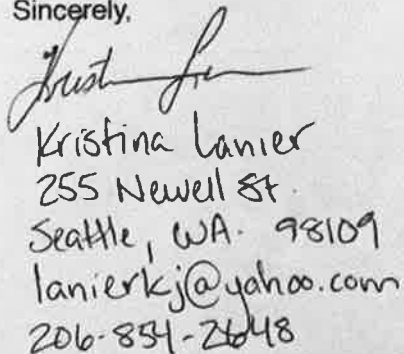 Sincerely,
Kristina Lanier
255 Newell St.
Seattle, WA. 98109
lanierkj@yahoo.com
206-854-2648